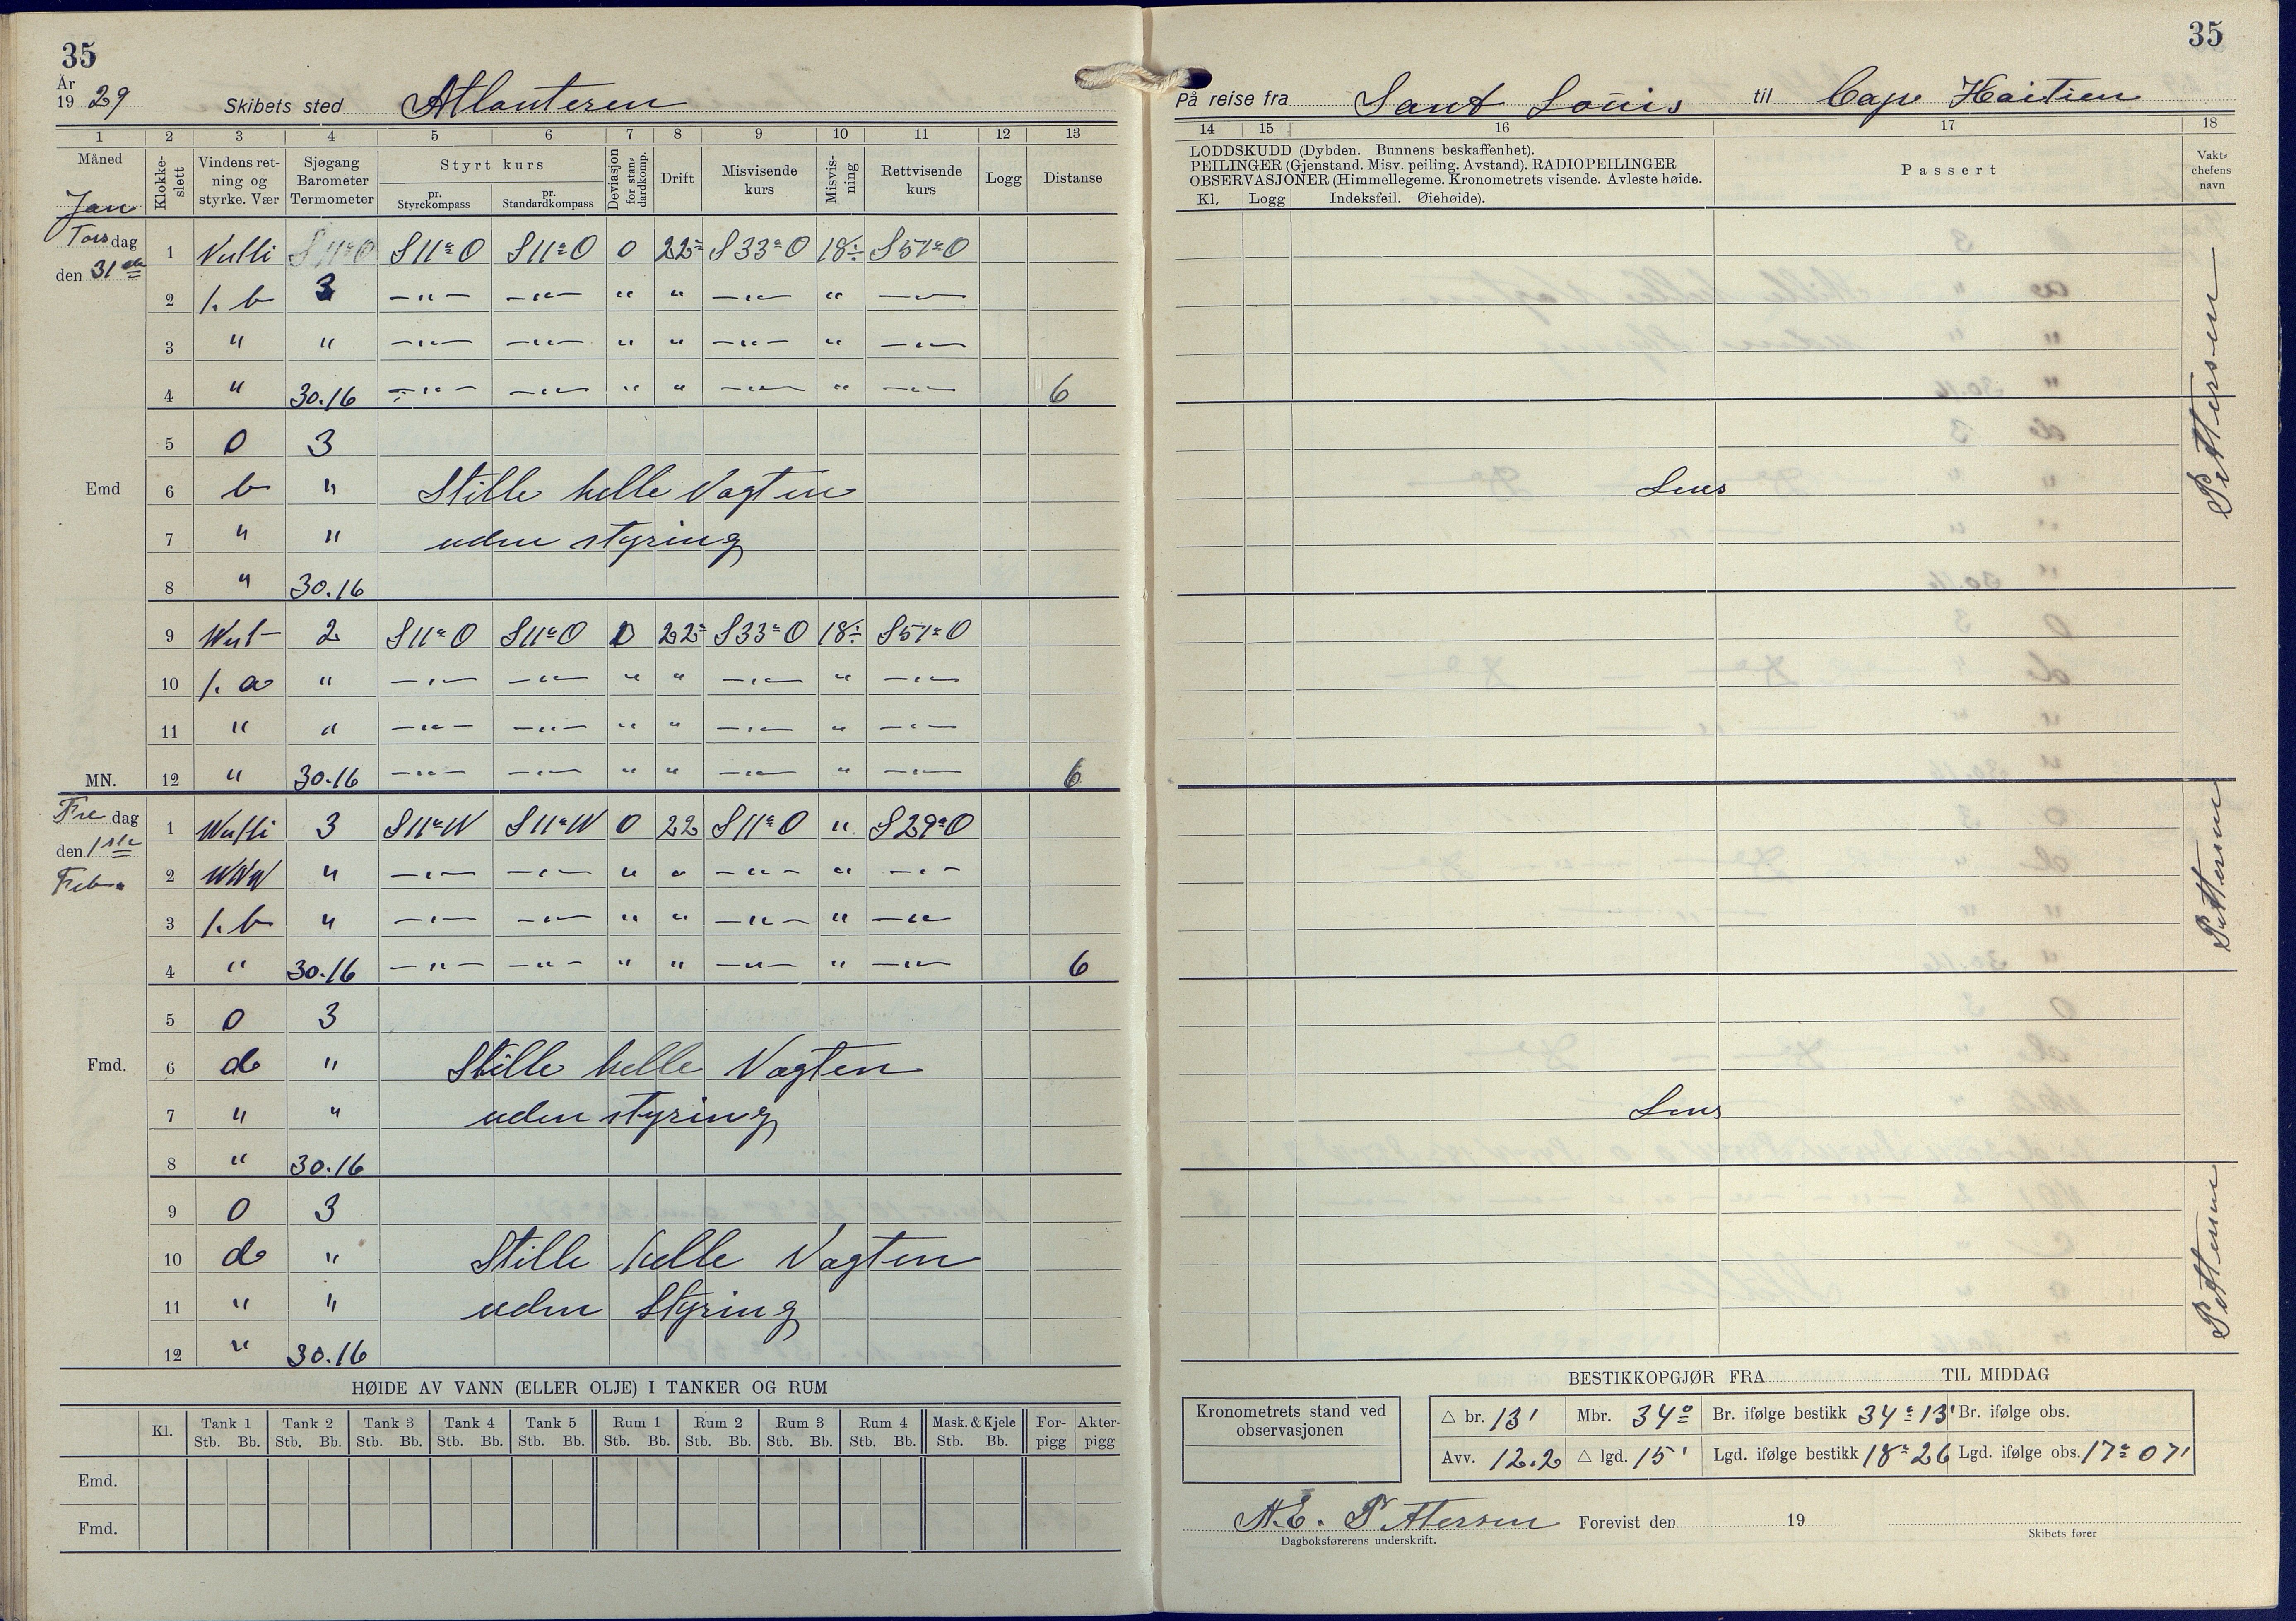 35
År
19 29 Skibets sted Atlanteren
1 2 3 4 5 6 7 8 9 10 11 12 13
Måned Klokke-slett Vindens ret-ning og styrke. Vær Sjøgang Barometer Termometer Styrt kurs pr. Styrekompass pr. Standardkompass Deviasjon for stan-dardkomp. Drift Misvisende kurs Misvis-ning Rettvisende kurs Logg Distanse
Jan
Torsdag 1 S11°O S11°O S11°O 0 22° S33°O 18÷ S51°O
den 31te
2 1. b 3 —"— —"— " " —"— " —"—
3 " " —"— —"— " " —"— " —"—
4 " 30.16 —"— —"— " " —"— " —"— 6
5 0 3
Emd 6 b " Stille helle Vagten
7 " " uden styring
8 " 30.16
9 West 2 S11°O S11°O 0 22° S33°O 18÷ S51°O
10 1. a " —"— —"— " " —"— " —"—
11 " " —"— —"— " " —"— " —"—
MN. 12 " 30.16 —"— —"— " " —"— " —"— 6
Fredag 1 3 S11°W S11°W 0 22 S11°O " S29°O
den 1ste
Febr. 2 WNW " —"— —"— " " —"— " —"—
3 1. b " —"— —"— " " —"— " —"—
4 " 30.16 —"— —"— " " —"— " —"— 6
5 0 3
Fmd. 6 d " Stille helle Vagten
7 " " uden styring
8 " 30.16
9 0 3
10 d " Stille helle Vagten
11 " " uden Styring
12 " 30.16
HØIDE AV VANN (ELLER OLJE) I TANKER OG RUM
Kl. Tank 1 Tank 2 Tank 3 Tank 4 Tank 5 Rum 1 Rum 2 Rum 3 Rum 4 Mask. & Kjele For-pigg Akter-pigg
Stb. Bb. Stb. Bb. Stb. Bb. Stb. Bb. Stb. Bb. Stb. Bb. Stb. Bb. Stb. Bb. Stb. Bb. Stb. Bb.
Emd.
Fmd.
35
På reise fra Sant Louis til Cape Haitien
14 15 16 17 18
LODDSKUDD (Dybden. Bunnens beskaffenhet).
PEILINGER (Gjenstand. Misv. peiling. Avstand). RADIOPEILINGER
OBSERVASJONER (Himmellegeme. Kronometrets visende. Avleste høide.
Kl. Logg Indeksfeil. Øiehøide).
Passert
Vakt-chefens navn
Pettersen
Lens
Pettersen
Lens
Pettersen
BESTIKKOPGJØR FRA TIL MIDDAG
Kronometrets stand ved observasjonen
△ br. 13' Mbr. 34° Br. ifølge bestikk 34°13' Br. ifølge obs.
Avv. 12.2 △ lgd. 15' Lgd. ifølge bestikk 18°26 Lgd. ifølge obs. 17°07'
N.E. Pettersen Forevist den 19
Dagboksførerens underskrift. Skibets fører